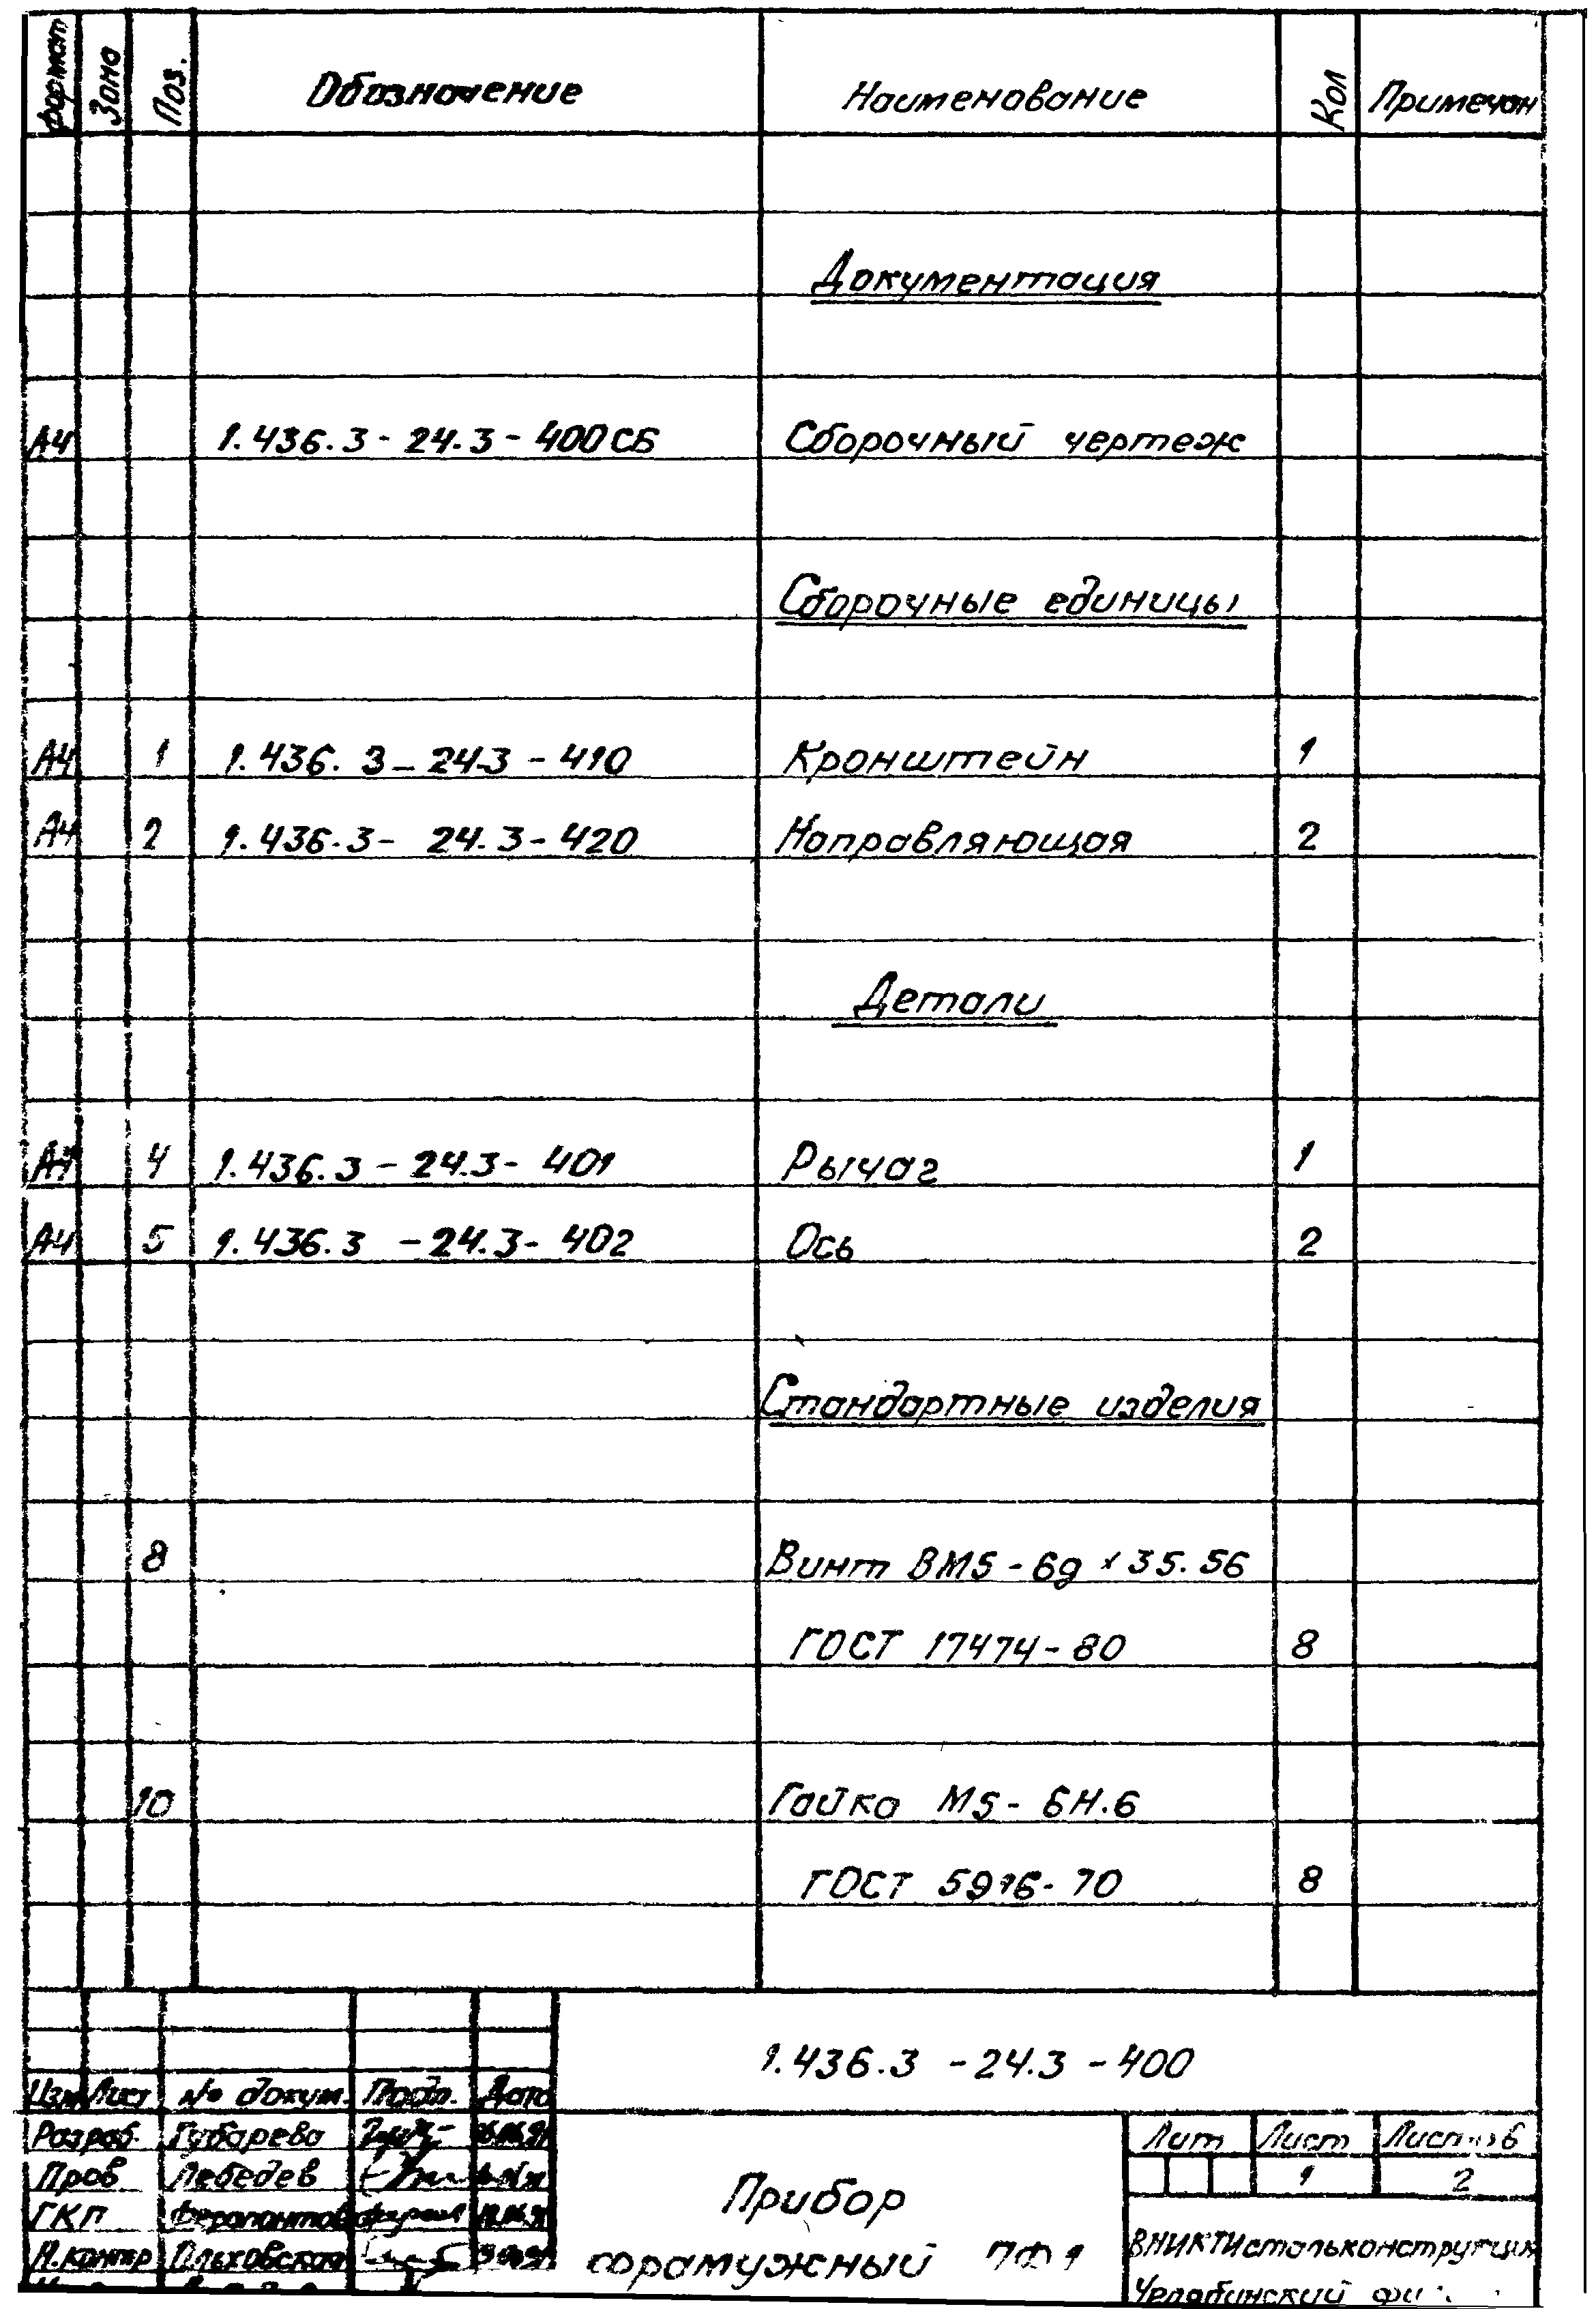 Формат Зона Поз. Обозначение Наименование Кол Примечан
Документация
А4 1.436.3-24.3-400СБ Сборочный чертеж
Сборочные единицы
А4 1 1.436.3-24.3-410 Кронштейн 1
А4 2 1.436.3-24.3-420 Направляющая 2
Детали
А4 4 1.436.3-24.3-401 Рычаг 1
А4 5 1.436.3-24.3-402 Ось 2
Стандартные изделия
8 Винт ВМ5-6g×35.56
ГОСТ 17474-80 8
10 Гайка М5-6Н.6
ГОСТ 5916-70 8
1.436.3-24.3-400
Изм Лист № докум. Подп. Дата
Разраб. Губарева
Пров Лебедев
ГКП
Н.контр Ольховская
Прибор
форамужный ПФ1
Лит Лист Листов
1 2
ВНИКТИстальконструкция
Челябинский